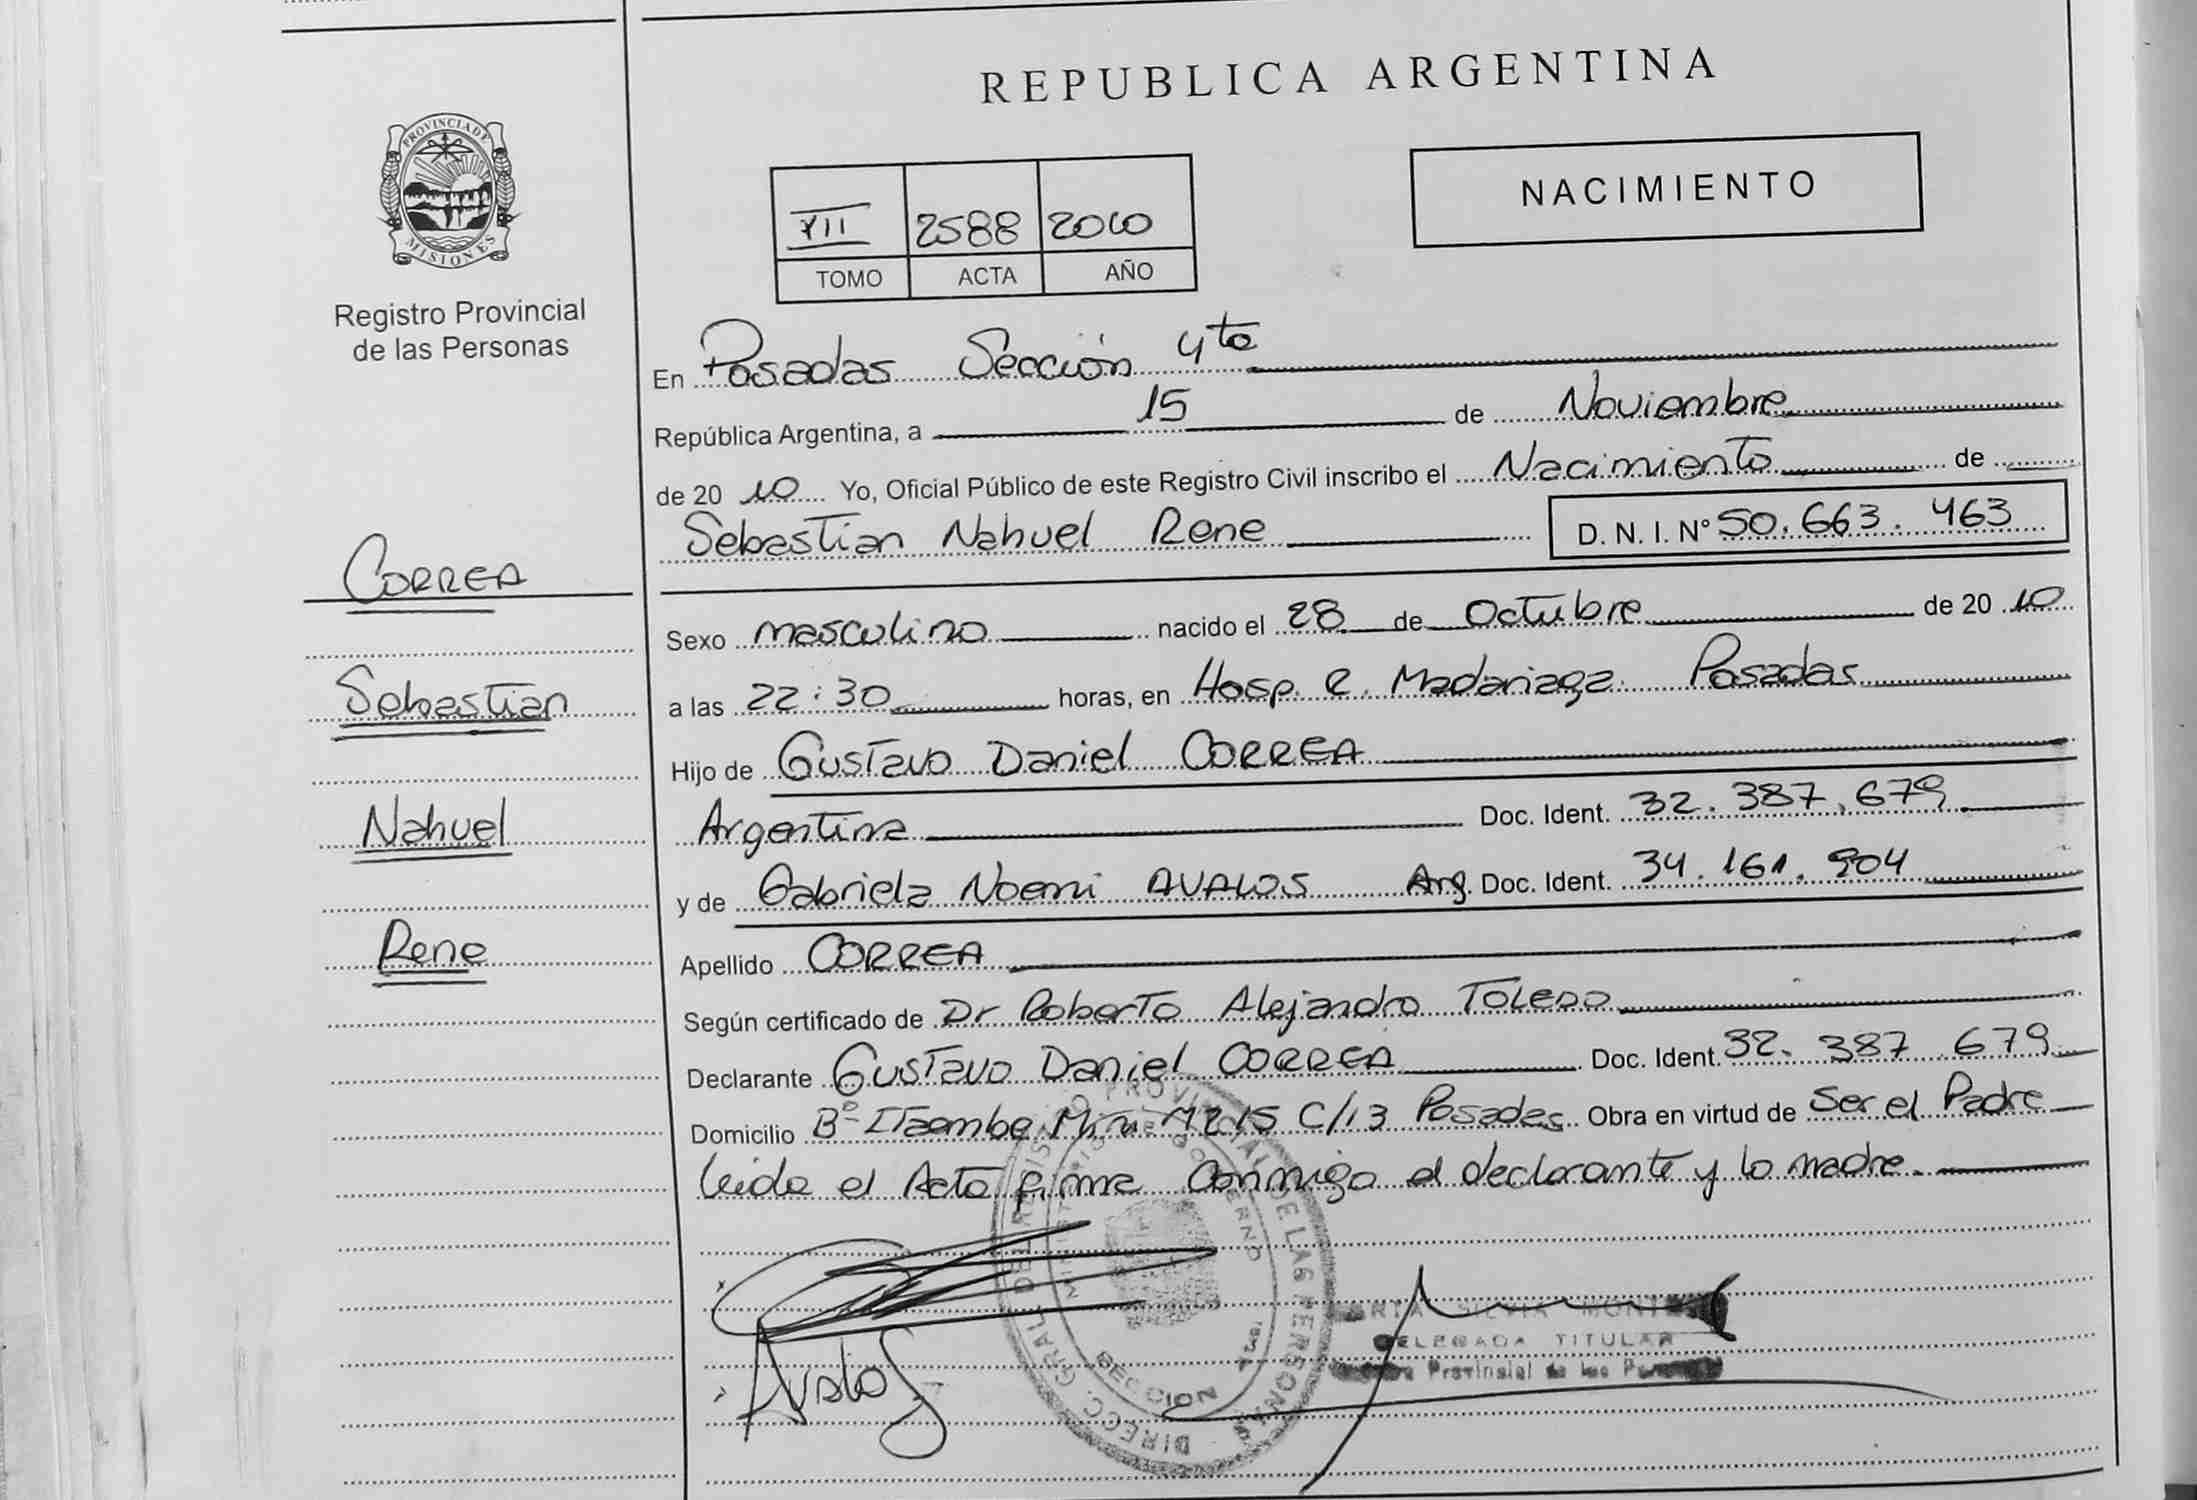 REPUBLICA ARGENTINA
PROVINCIA DE
MISIONES
Registro Provincial
de las Personas
NACIMIENTO
VII 2588 2010
TOMO ACTA AÑO
En Posadas Sección 4ta
República Argentina, a 15 de Noviembre
de 20 10 Yo, Oficial Público de este Registro Civil inscribo el Nacimiento de
Sebastian Nahuel Rene D. N. I. N° 50.663.463
CORREA
Sebastian
Nahuel
Rene
Sexo masculino nacido el 28 de Octubre de 20 10
a las 22:30 horas, en Hosp. R. Madariaga Posadas
Hijo de Gustavo Daniel CORREA
Argentina Doc. Ident. 32.387.679
y de Gabriela Noemi AVALOS Arg. Doc. Ident. 34.161.904
Apellido CORREA
Según certificado de Dr Roberto Alejandro Toledo
Declarante Gustavo Daniel CORREA Doc. Ident. 32.387.679
Domicilio B° Itaembe Mini Mz 15 C/13 Posadas Obra en virtud de Ser el Padre
leida el Acta firma conmigo el declarante y la madre.
Avalos
SILVIA
DELEGADA TITULAR
Provincial de las
DIRECC. GRAL. DEL REGISTRO PROVINCIAL DE LAS PERSONAS
MINISTERIO DE GOBIERNO
SECCION